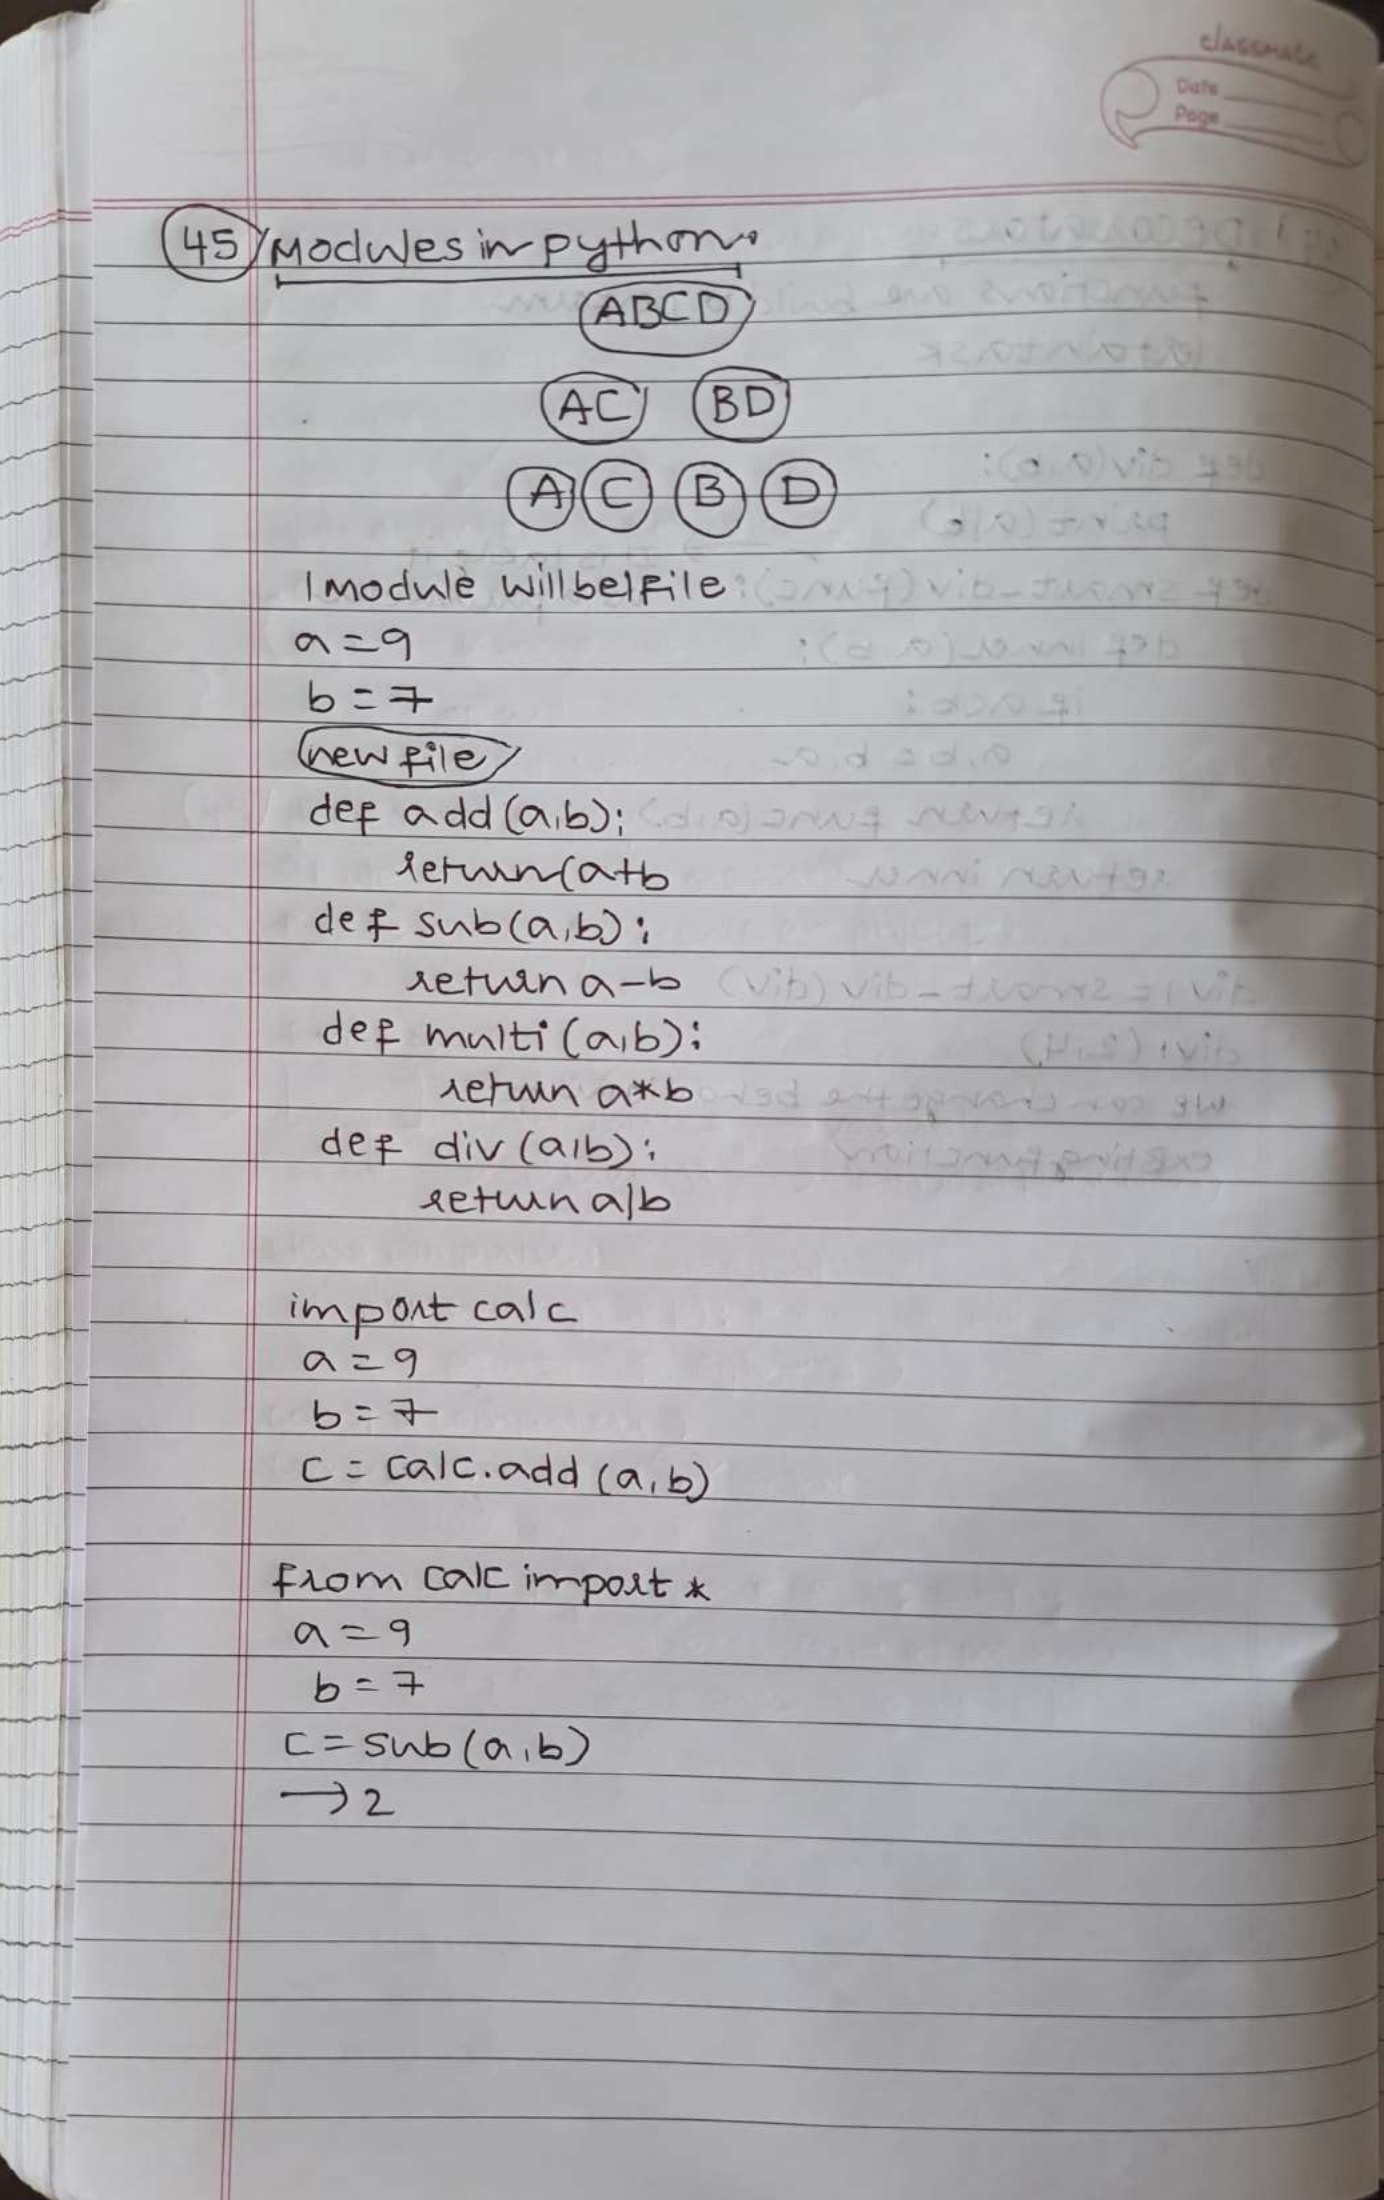 classmate
Date
Page
45 Modules in python.
ABCD
AC BD
A C B D
1 Module will be 1 file
a = 9
b = 7
new file
def add(a,b):
return(a+b
def sub(a,b):
return a-b
def multi(a,b):
return a*b
def div(a,b):
return a/b
import calc
a = 9
b = 7
c = calc.add(a,b)
from calc import *
a = 9
b = 7
c = sub(a,b)
→ 2